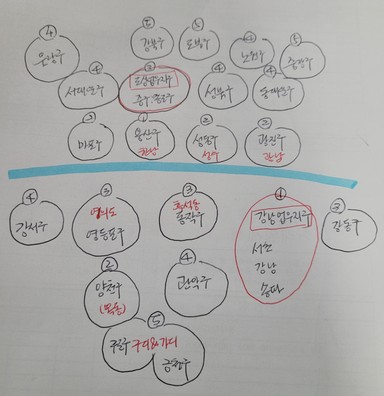 ④
은평구
⑤
강북구
⑤
도봉구
노원구
⑤
중랑구
④
서대문구
③
도심업무지구
중구·종로구
④
성북구
④
동대문구
②
마포구
①
용산구
한남
②
성동구
성수
②
광진구
광남
④
강서구
③
여의도
영등포구
③
흑석동
동작구
①
강남업무지구
서초
강남
송파
③
강동구
②
양천구
(목동)
④
관악구
⑤
구로구 구디&가디
금천구